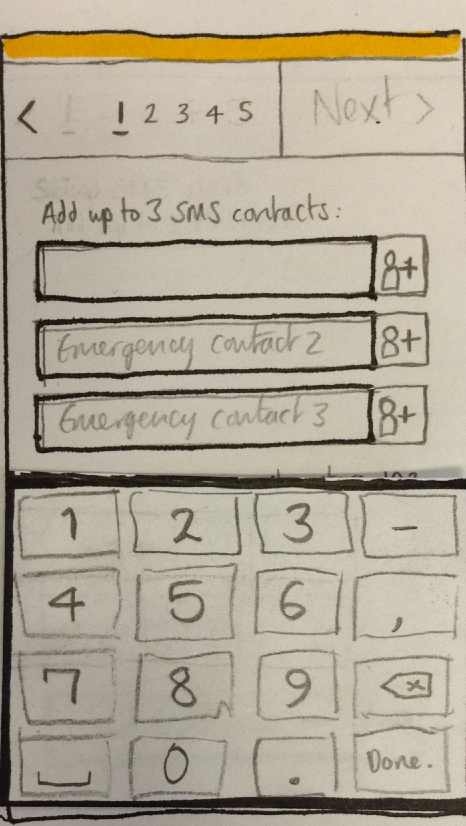 < 1 2 3 4 5 Next >
Add up to 3 SMS contacts:
8+
Emergency contact 2 8+
Emergency contact 3 8+
1 2 3 -
4 5 6 ,
7 8 9 x
0 . Done.